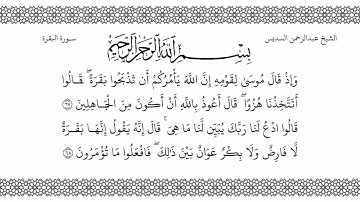 سورة البقرة
الشيخ عبدالرحمن السديس
بِسْمِ اللَّهِ الرَّحْمَٰنِ الرَّحِيمِ
وَإِذْ قَالَ مُوسَىٰ لِقَوْمِهِ إِنَّ اللَّهَ يَأْمُرُكُمْ أَن تَذْبَحُوا بَقَرَةً ۖ قَالُوا
أَتَتَّخِذُنَا هُزُوًا ۖ قَالَ أَعُوذُ بِاللَّهِ أَنْ أَكُونَ مِنَ الْجَاهِلِينَ ﴿٦٧﴾
قَالُوا ادْعُ لَنَا رَبَّكَ يُبَيِّن لَّنَا مَا هِيَ ۚ قَالَ إِنَّهُ يَقُولُ إِنَّهَا بَقَرَةٌ
لَّا فَارِضٌ وَلَا بِكْرٌ عَوَانٌ بَيْنَ ذَٰلِكَ ۖ فَافْعَلُوا مَا تُؤْمَرُونَ ﴿٦٨﴾